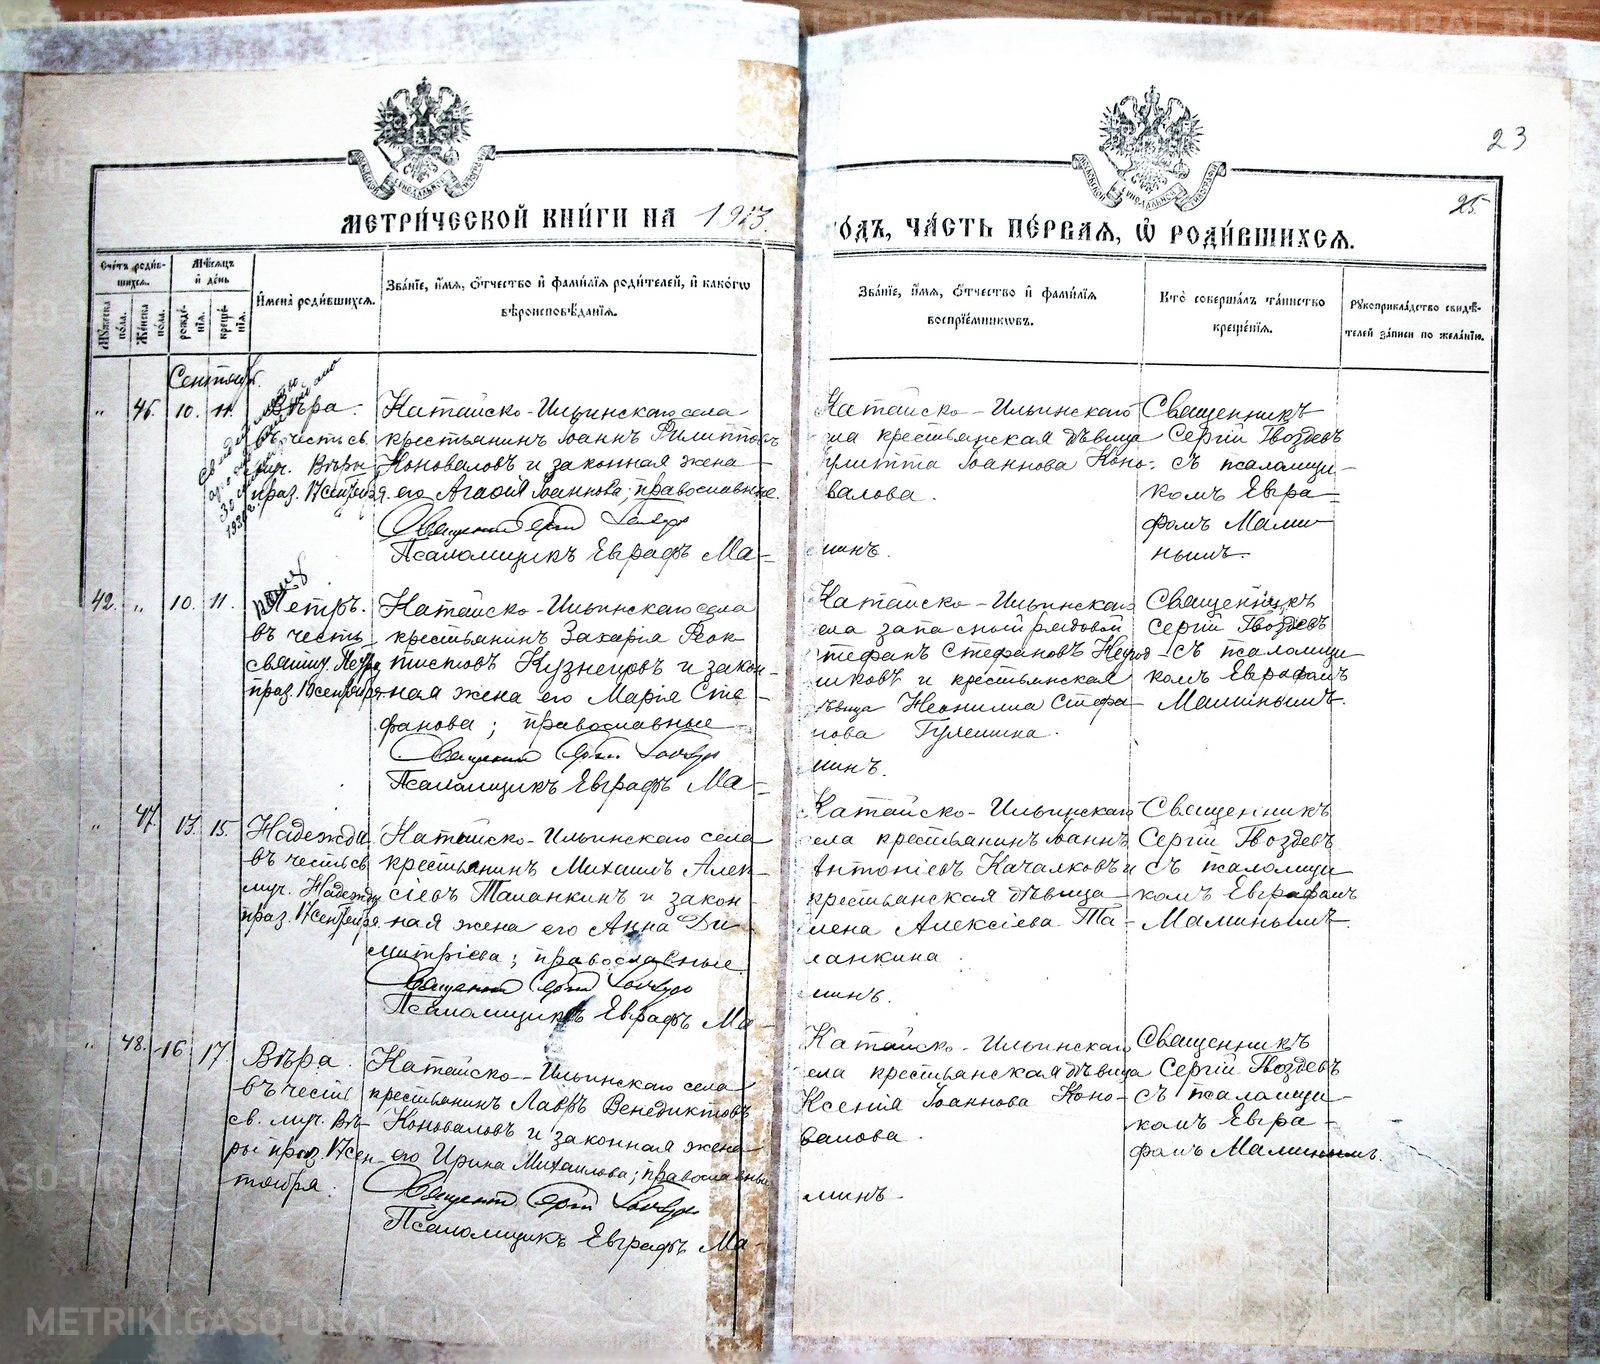 23
25
МЕТРИ́ЧЕСКОЙ КНИ́ГИ НА 1913.
ГОДЪ, ЧА́СТЬ ПЕ́РВАЯ, Ѡ РОДИ́ВШИХСЯ.
Сче́тъ роди́в-
шихся.
Му́жеска
по́ла.
Же́нска
по́ла.
Мѣ́сяцъ
и де́нь
рожде́-
нія.
креще́-
нія.
Имена̀ роди́вшихся.
Зва́ніе, и́мя, о́тчество и фами́лія роди́телей, и како́гѡ
вѣроисповѣ́данія.
Зва́ніе, и́мя, о́тчество и фами́лія
воспріе́мниковъ.
Кто̀ соверша́лъ та́инство
креще́нія.
Рукоприкла́дство свидѣ́-
телей за́писи по жела́нію.
Сентябрь.
" 46. 10. 11. Вѣра.
въ честь св.
муч. Вѣры
праз. 17 сентября.
Катайско-Ильинскаго села
крестьянинъ Іоаннъ Филипповъ
Коноваловъ и законная жена
его Агафія Іоаннова; православные.
Священникъ Сергій Гвоздевъ
Псаломщикъ Евграфъ Ма-
Катайско-Ильинскаго
ла крестьянская дѣвица
улитта Іоаннова Коно-
валова.
минъ.
Священникъ
Сергій Гвоздевъ
съ псаломщи-
комъ Евгра-
фомъ Мами-
нымъ.
42. " 10. 11. Петръ.
въ честь
святит. Петра
праз. 10 сентября
Катайско-Ильинскаго села
крестьянинъ Захарія Феок
тистовъ Кузнецовъ и закон-
ная жена его Марія Сте-
фанова; православные
Священникъ Сергій Гвоздевъ
Псаломщикъ Евграфъ Ма-
Катайско-Ильинскаго
ела запасный рядовой
тефанъ Стефановъ
шковъ и крестьянская
ѣвица Неонилла Стефа-
нова
минъ.
Священникъ
Сергій Гвоздевъ
съ псаломщи-
комъ Евграфомъ
Маминымъ.
" 47. 13. 15. Надежда
въ честь св.
муч. Надежды
праз. 17 сентября
Катайско-Ильинскаго села
крестьянинъ Михаилъ Алек-
сіевъ Таланкинъ и закон-
ная жена его Анна Ди-
митріева; православные.
Священникъ Сергій Гвоздевъ
Псаломщикъ Евграфъ Ма-
Катайско-Ильинскаго
ела крестьянинъ Іоаннъ
Антоніевъ Качалковъ и
крестьянская дѣвица
лена Алексіева Та-
ланкина.
минъ.
Священникъ
Сергій Гвоздевъ
съ псаломщи
комъ Евграфомъ
Маминымъ.
" 48. 16 17 Вѣра.
въ честь
св. муч. Вѣ-
ры праз. 17 сен-
тября.
Катайско-Ильинскаго села
крестьянинъ Лавръ Венедиктовъ
Коноваловъ и законная жена
его Ирина Михаилова; православные
Священникъ Сергій Гвоздевъ
Псаломщикъ Евграфъ Ма-
Катайско-Ильинскаго
ела крестьянская дѣвица
Ксенія Іоаннова Коно-
валова.
минъ.
Священникъ
Сергій Гвоздевъ
съ псаломщи-
комъ Евгра-
фомъ Маминымъ.
METRIKI.GASO-URAL.RU